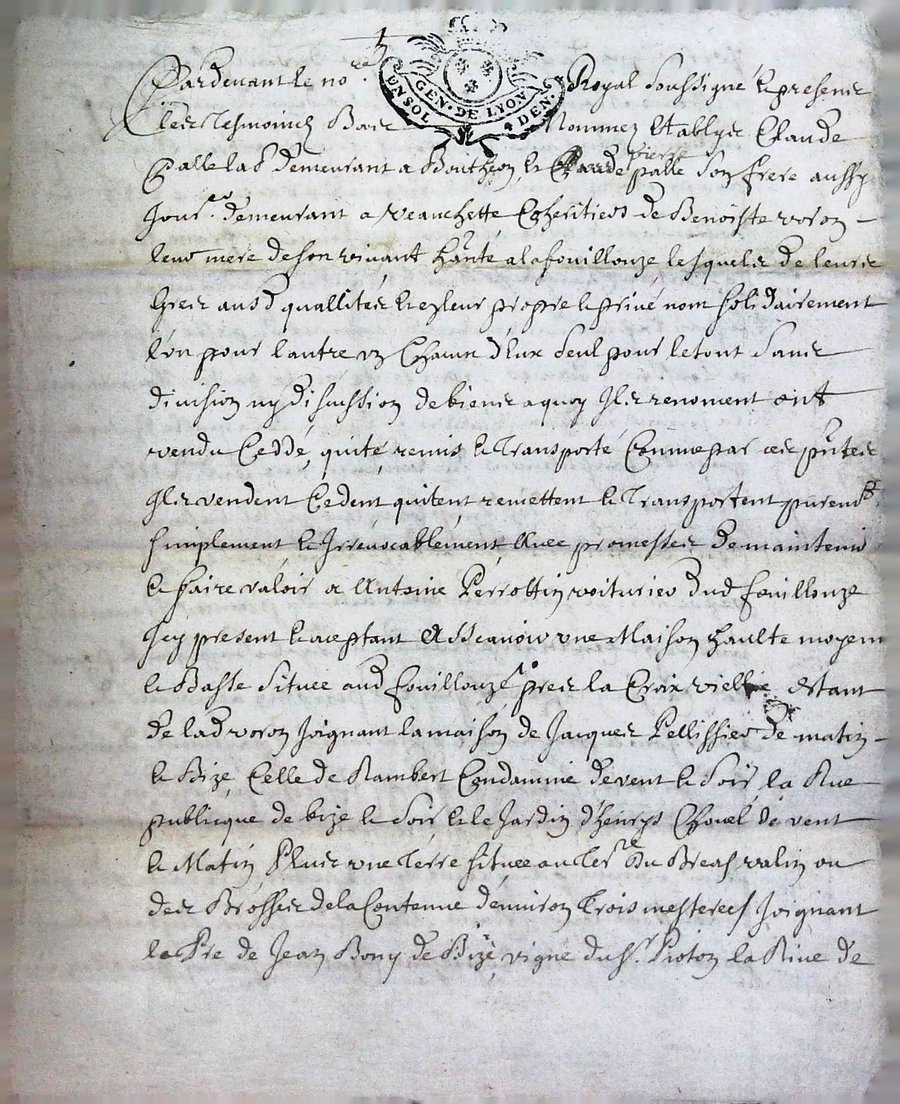 GEN. DE LYON
EN SOL 4 DEN.
Pardevant le no.re Royal soussigné et presens
les tesmoings Bas Nommez Establys Claude
palle lab.r demeurant a Bouthéon et Claude pierre palle son frere aussy
Jour.r demeurant a Veauchette Coheritiers de Benoiste voron
leur mere de son vivant h[abit]ante a la fouillouze lesquels de leurs
grez ausd quallités et en leur propre et privé nom solidairement
l'un pour l'autre un Chacun d'Eux seul pour le tout sans
division ny discussion de biens a quoy Ils renoncent ont
vendu Ceddé, quité remis et Transporté Comme par ces p[rese]ntes
Ils vendent Cedent quitent remettent et Transportent purem.t
simplement et Irrevocablement Avec promesses de maintenir
et faire valoir a Anthoine Perrottin voiturier dud fouillouze
Icy present et aceptant Assavoir une Maison haulte moyenne
et Basse Située aud fouillouze pres la Croix vielle estant
de lad voron Joignant la maison de Jacques Pellissier de matin
et Bize, Celle de Rambert Condamine de vent et soir, la Rue
publicque de bize et soir et le Jardin d'henrys Chovel de vent
et Matin Plus une Terre située au Ter.re du Breas valin ou
des Brosses de la Contenue d'environ Trois mesterées Joignant
le Pre de Jean Bony de Bize, vigne du s.r Pioton la Rive de